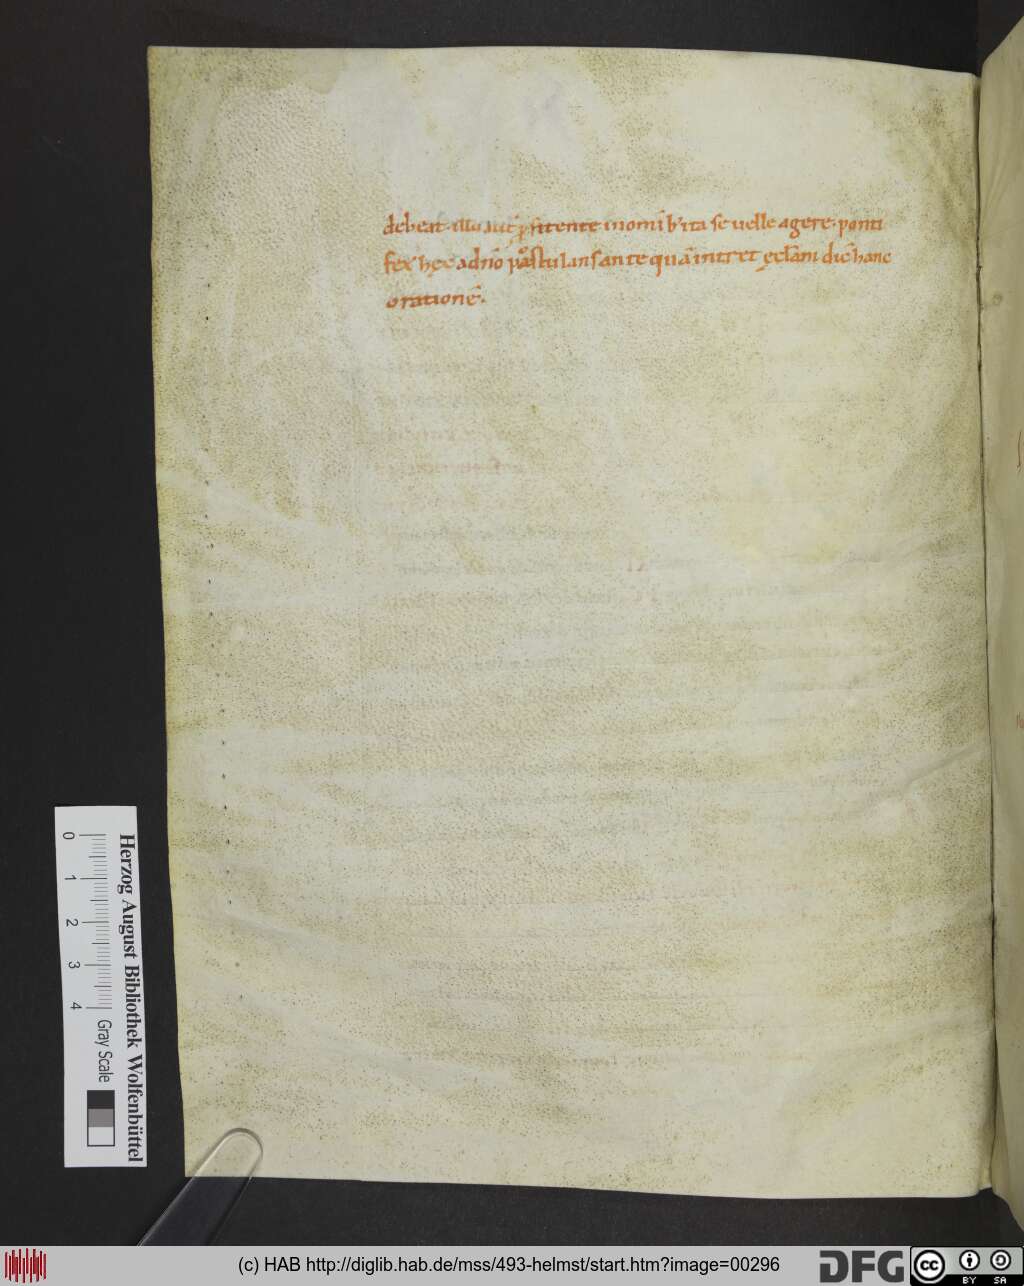 debeat. illo aut̄ ꝓfitente inomīb; ita se uelle agere. ponti
fex hec adn̄o postulans ante quā intret ęcl̄am dic̄ hanc
orationē.
0
1
2
3
4
Gray Scale
Herzog August Bibliothek Wolfenbüttel
(c) HAB http://diglib.hab.de/mss/493-helmst/start.htm?image=00296
DFG
cc
BY SA